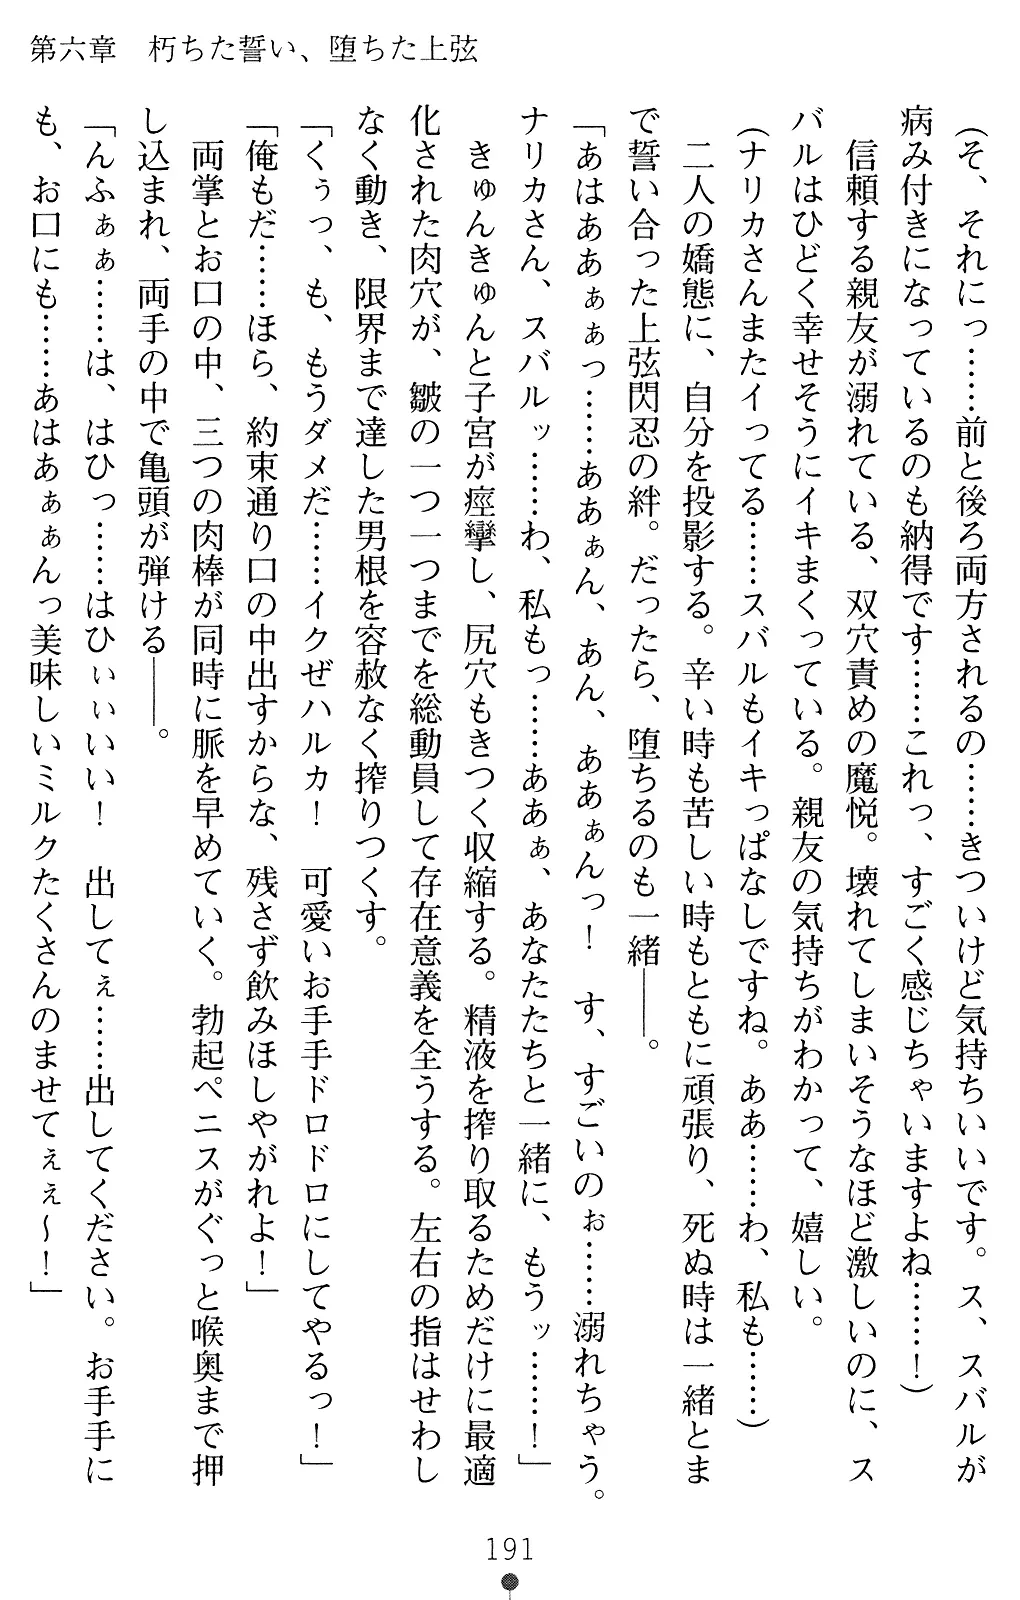 第六章　朽ちた誓い、堕ちた上弦
(そ、それにっ……前と後ろ両方されるの……きついけど気持ちいいです。ス、スバルが
病み付きになっているのも納得です……これっ、すごく感じちゃいますよね……！)
　信頼する親友が溺れている、双穴責めの魔悦。壊れてしまいそうなほど激しいのに、ス
バルはひどく幸せそうにイキまくっている。親友の気持ちがわかって、嬉しい。
(ナリカさんまたイってる……スバルもイキっぱなしですね。ああ……わ、私も……)
　二人の嬌態に、自分を投影する。辛い時も苦しい時もともに頑張り、死ぬ時は一緒とま
で誓い合った上弦閃忍の絆。だったら、堕ちるのも一緒――。
「あはああぁぁっ……ああぁん、あん、ああぁんっ！　す、すごいのぉ……溺れちゃう。
ナリカさん、スバルッ……わ、私もっ……ああぁ、あなたたちと一緒に、もうッ……！」
　きゅんきゅんと子宮が痙攣し、尻穴もきつく収縮する。精液を搾り取るためだけに最適
化された肉穴が、皺の一つ一つまでを総動員して存在意義を全うする。左右の指はせわし
なく動き、限界まで達した男根を容赦なく搾りつくす。
「くぅっ、も、もうダメだ……イクぜハルカ！　可愛いお手手ドロドロにしてやるっ！」
「俺もだ……ほら、約束通り口の中出すからな、残さず飲みほしやがれよ！」
　両掌とお口の中、三つの肉棒が同時に脈を早めていく。勃起ペニスがぐっと喉奥まで押
し込まれ、両手の中で亀頭が弾ける――。
「んふぁぁ……は、はひっ……はひぃぃいい！　出してぇ……出してください。お手手に
も、お口にも……あはあぁぁんっ美味しいミルクたくさんのませてぇぇ～！」
191